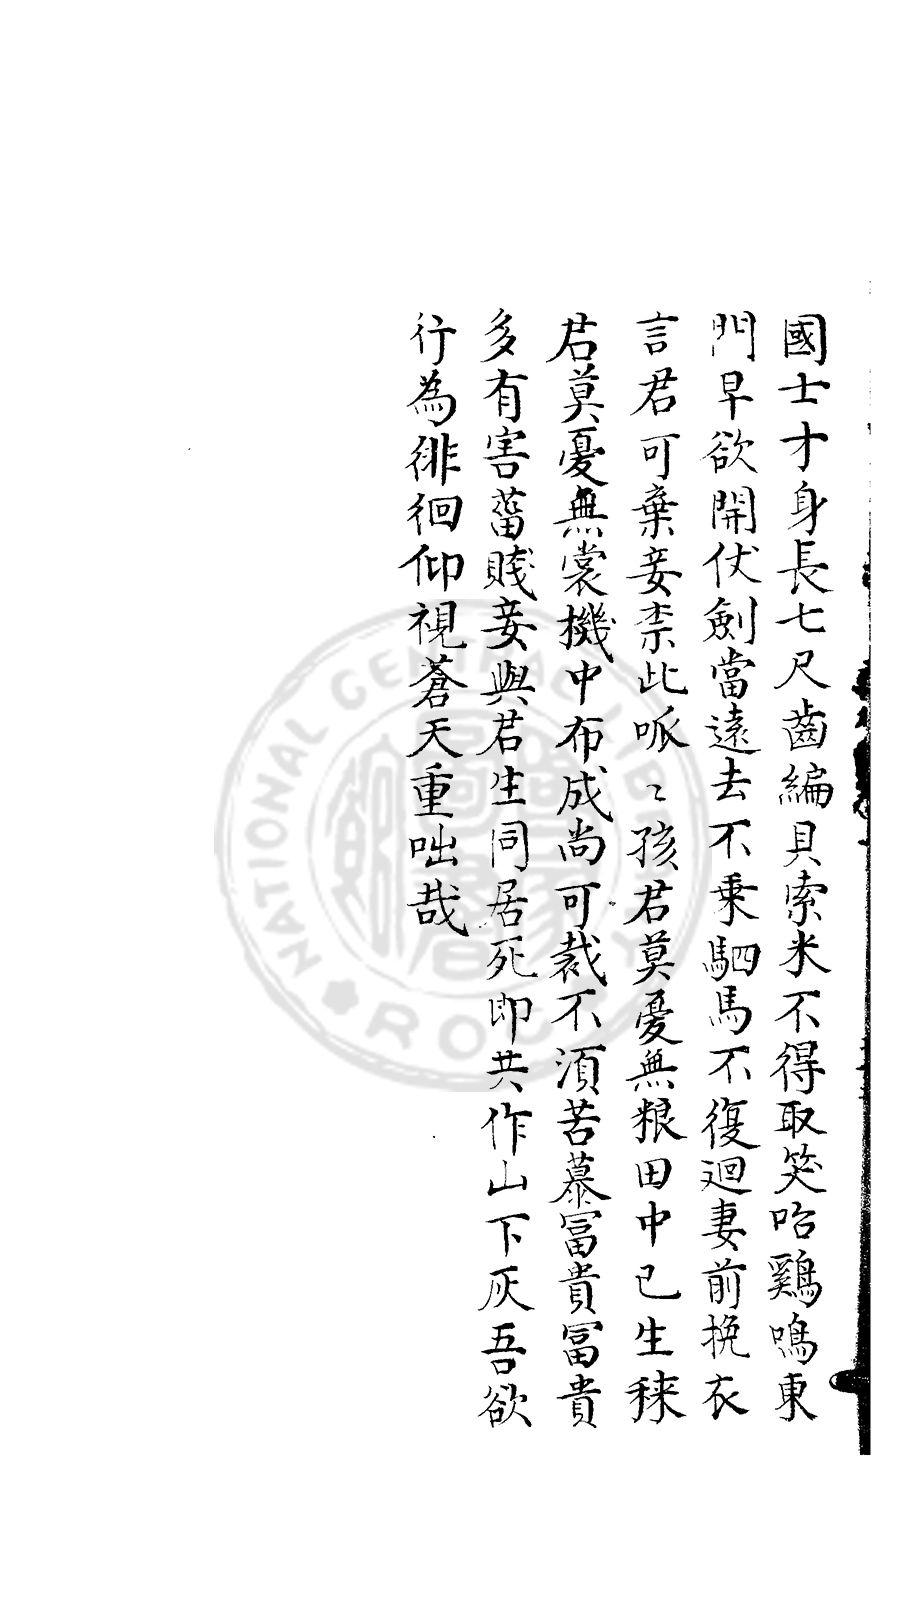 國士才身長七尺齒編貝索米不得取笑咍鷄鳴東
門早欲開伏劍當遠去不乘駟馬不復迴妻前挽衣
言君可棄妾柰此呱〻孩君莫憂無粮田中已生稑
君莫憂無裳機中布成尚可裁不湏苦慕冨貴冨貴
多有害菑賤妾與君生同居死即共作山下灰吾欲
行為徘徊仰視蒼天重咄哉
NATIONAL CENTRAL LIBRARY
R.O.C.